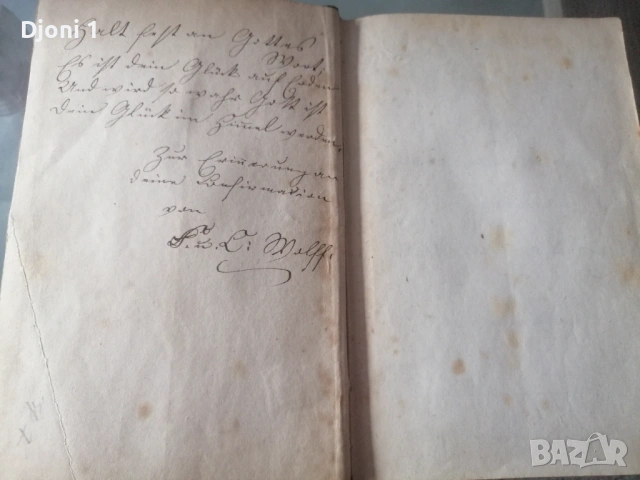 Djoni 1
Halt fest an Gottes
Wort,
Es ist dein Glück auf Erden
Und wird so wahr Gott ist
Dein Glück im Himmel werden.
Zur Erinnerung an
deine Confirmation
von
F. u. C. Wolff.
BAZAR
bazar.bg